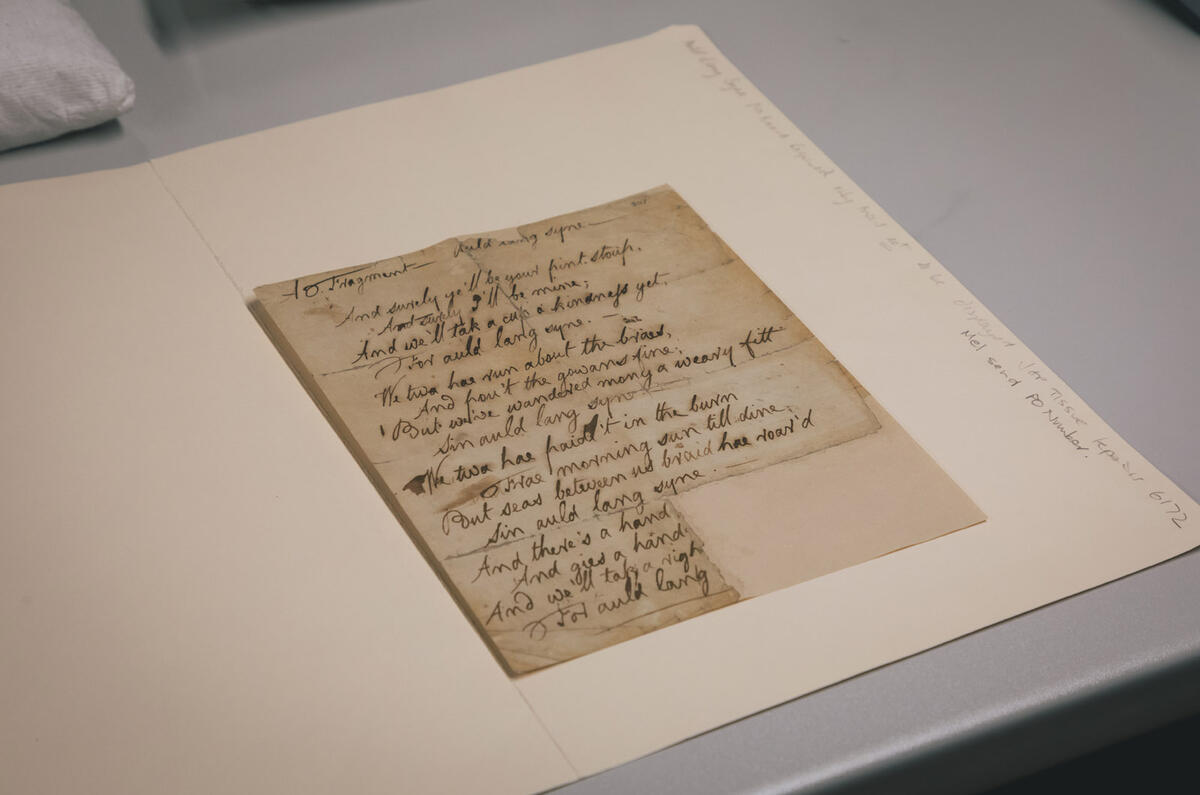 Auld lang syne
Fragment
And surely ye'll be your pint stoup,
And surely I'll be mine;
And we'll tak a cup o kindness yet,
For auld lang syne.
We twa hae run about the braes,
And pou't the gowans fine;
But we've wandered mony a weary fitt
Sin auld lang syne
We twa hae paidl't in the burn
Frae morning sun till dine;
But seas between us braid hae roar'd
Sin auld lang syne.
And there's a hand
And gies a hand
And we'll tak a righ
For auld lang
be displayed Tissue Repair 6172
Mel send PO Number.